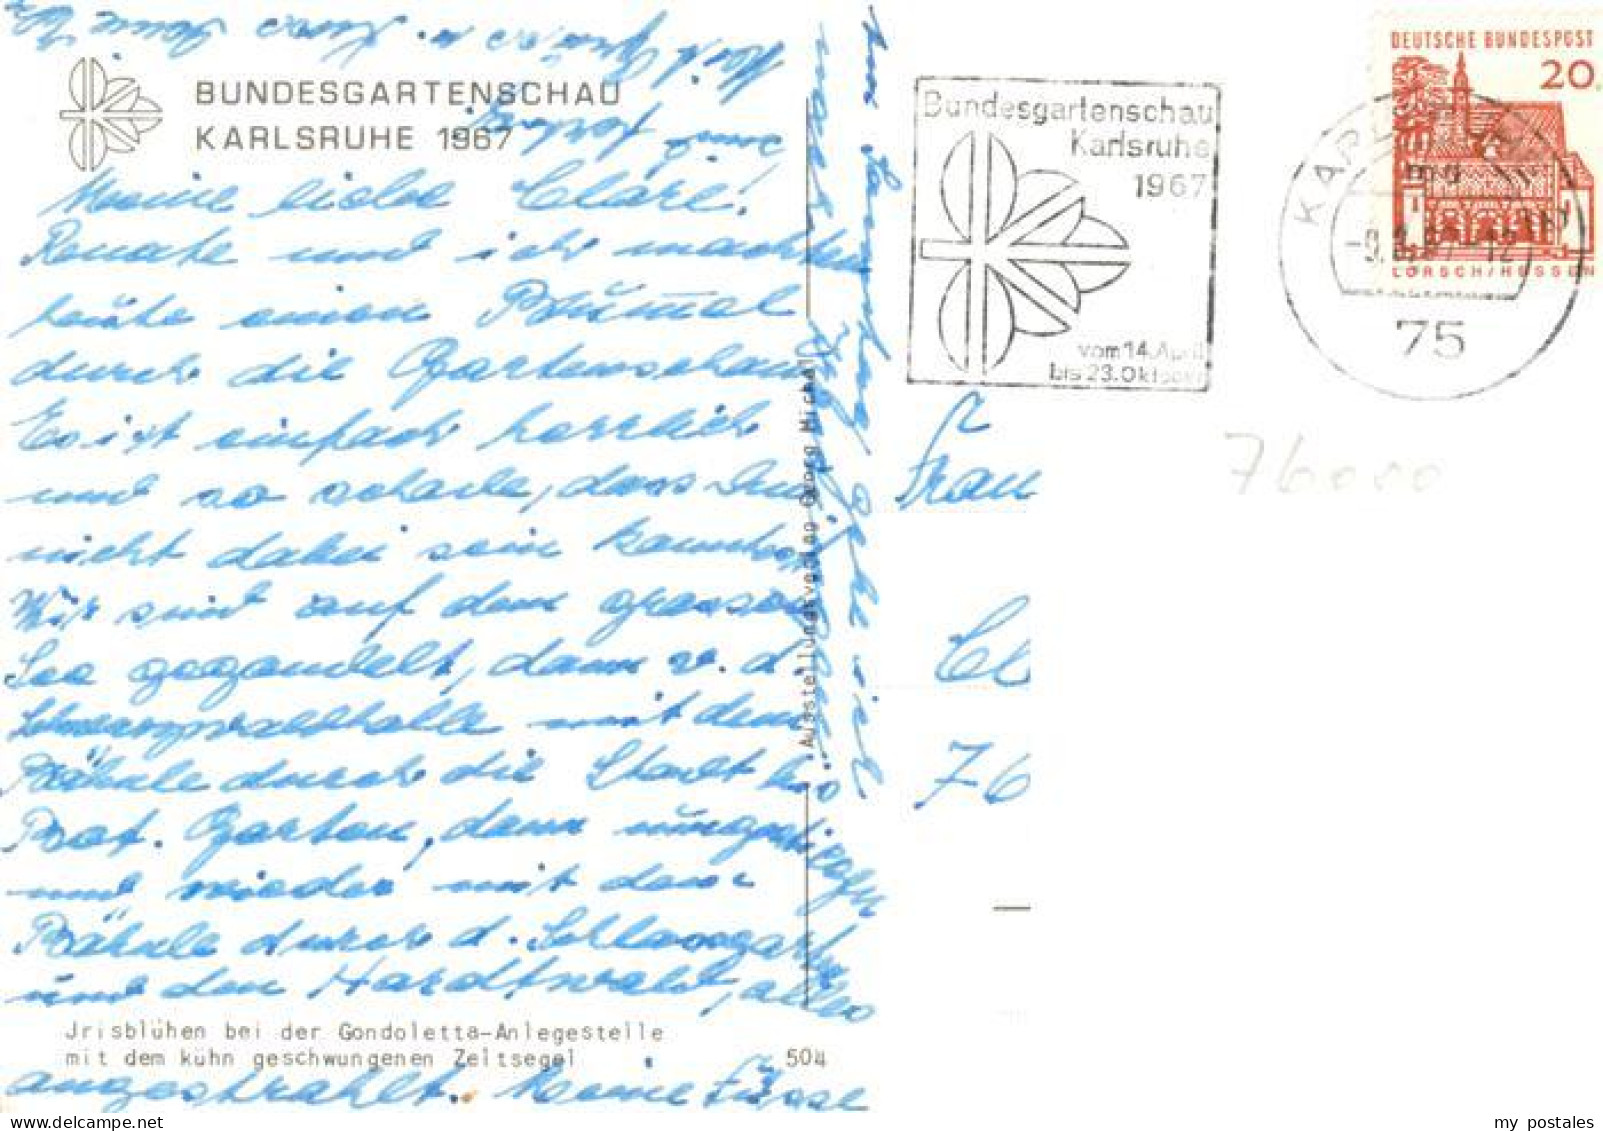 BUNDESGARTENSCHAU
KARLSRUHE 1967
Meine liebe Cläre!
Renate und ich machten
heute einen Bummel
durch die Gartenschau
Es ist einfach herrlich
und so schade, dass Du
nicht dabei sein konntest
Wir sind auf dem grossen
See gegondelt, dann v. d.
Schwarzwaldhalle mit dem
Bähnle durch die Stadt bis
Bot. Garten, dann
und wieder mit dem
Bähnle durch d. Schlossgarten
und den Hardtwald, alles
Jrisblühen bei der Gondoletta-Anlegestelle
mit dem kühn geschwungenen Zeltsegel
504
angestrahlt. Meine Füsse
Ausstellungsverlag Georg Michel
Bundesgartenschau
Karlsruhe
1967
vom 14. April
bis 23. Oktober
DEUTSCHE BUNDESPOST
20
LORSCH/HESSEN
KARLSRUHE
75
76000
Frau
Cl
76
my postales